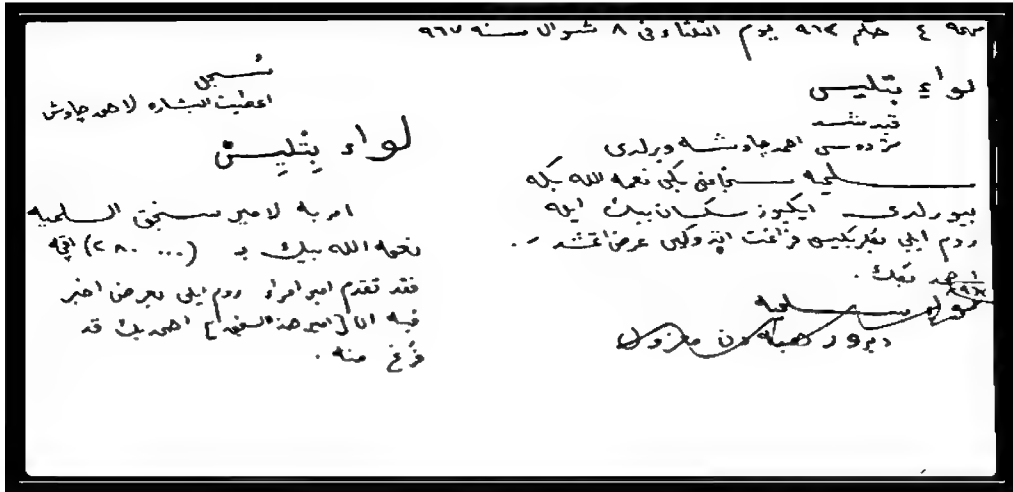 مهمه ٤ حكم ٩٦٢ يوم الثلثاء فى ٨ شوال سنه ٩٦٧
لواءِ بتليس
قيد شد
مژده سى احمد چاوشه ويرلدى
سلميه سنجاغى بكى نعمه الله بكه
بيورلدى ايكيوز سكسان بيك ايله
روم ايلى بكلربكيسى فراغت ايتدوكين عرض اتمشدر.
احمد بكك.
لواء سلميه
سُجل
اعطيت البشاره لاحمد چاوش
لواء بِتْلِيسْ
امر به لامير سنجق السلميه
نعمه الله بيك بـ (٢٨٠ ...) اقچه
فقد تقدم امير امراء روم ايلى بعرض اخبر
فيه ان [امير هذا السنجق] احمد بك قد
فَرَغَ منه.